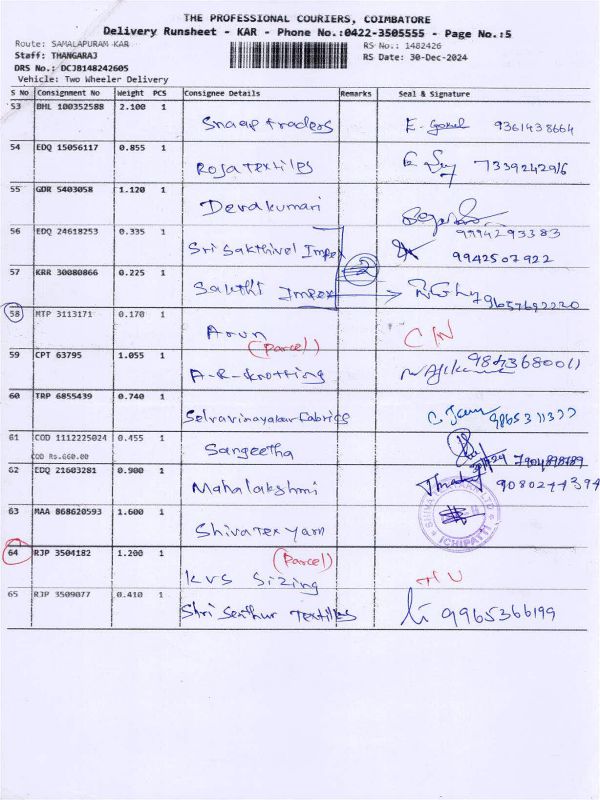 THE PROFESSIONAL COURIERS, COIMBATORE
Delivery Runsheet - KAR - Phone No.:0422-3505555 - Page No.:5
Route: SAMALAPURAM KAR
RS No.: 1482426
Staff: THANGARAJ
RS Date: 30-Dec-2024
DRS No.: DCJB148242605
Vehicle: Two Wheeler Delivery
S No Consignment No Weight PCS Consignee Details Remarks Seal & Signature
53 BHL 100352588 2.100 1
Snaap traders E. Gokul 9361438664
54 EDQ 15056117 0.855 1
Rosa Textiles 7339242916
55 GDR 5403058 1.120 1
Devakumari
56 EDQ 24618253 0.335 1 9994293383
Sri Sakthivel Impex 9942507922
57 KRR 30080866 0.225 1 2
Sakthi Impex 9657692220
58 MTP 3113171 0.170 1
Arun C/N
(Parcel)
59 CPT 63795 1.055 1 9843680011
A-R-Knotting
60 TRP 6855439 0.740 1
Selvavinayakar Fabrics
61 COD 1112225024 0.455 1
Sangeetha
COD Rs.660.00
62 EDQ 21603281 0.900 1
Mahalakshmi
63 MAA 868620593 1.600 1
Shivatex yarn
64 RJP 3504182 1.200 1 (Parcel)
KVS Sizing
65 RJP 3509077 0.410 1
Shri Senthur Textiles 9965366199